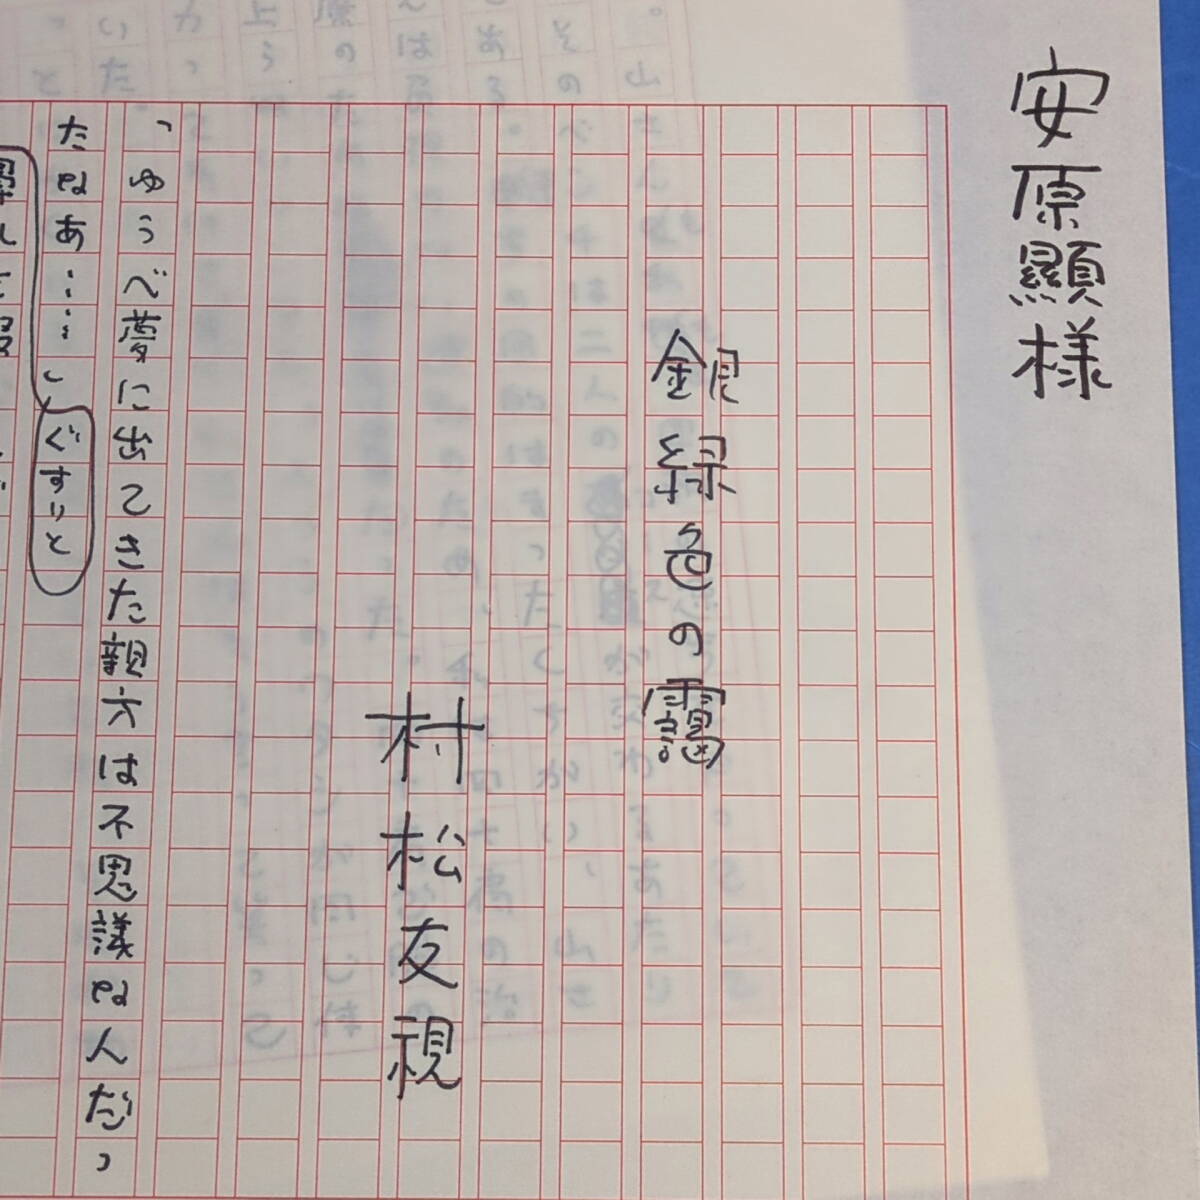 安原顯様
銀緑色の靄
村松友視
「ゆうべ夢に出てきた親方は不思議な人だっ
たなあ……」
ぐすりと